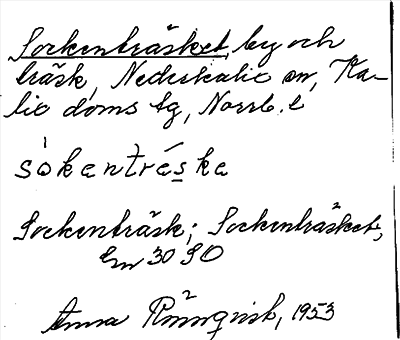 Sockenträsket, by och
träsk, Nederkalix sn, Ka-
lix doms tg, Norrb. l
sòkentréske
Sockenträsk; Sockenträsket,
Em 30 SO
Anna Rönnqvist, 1953